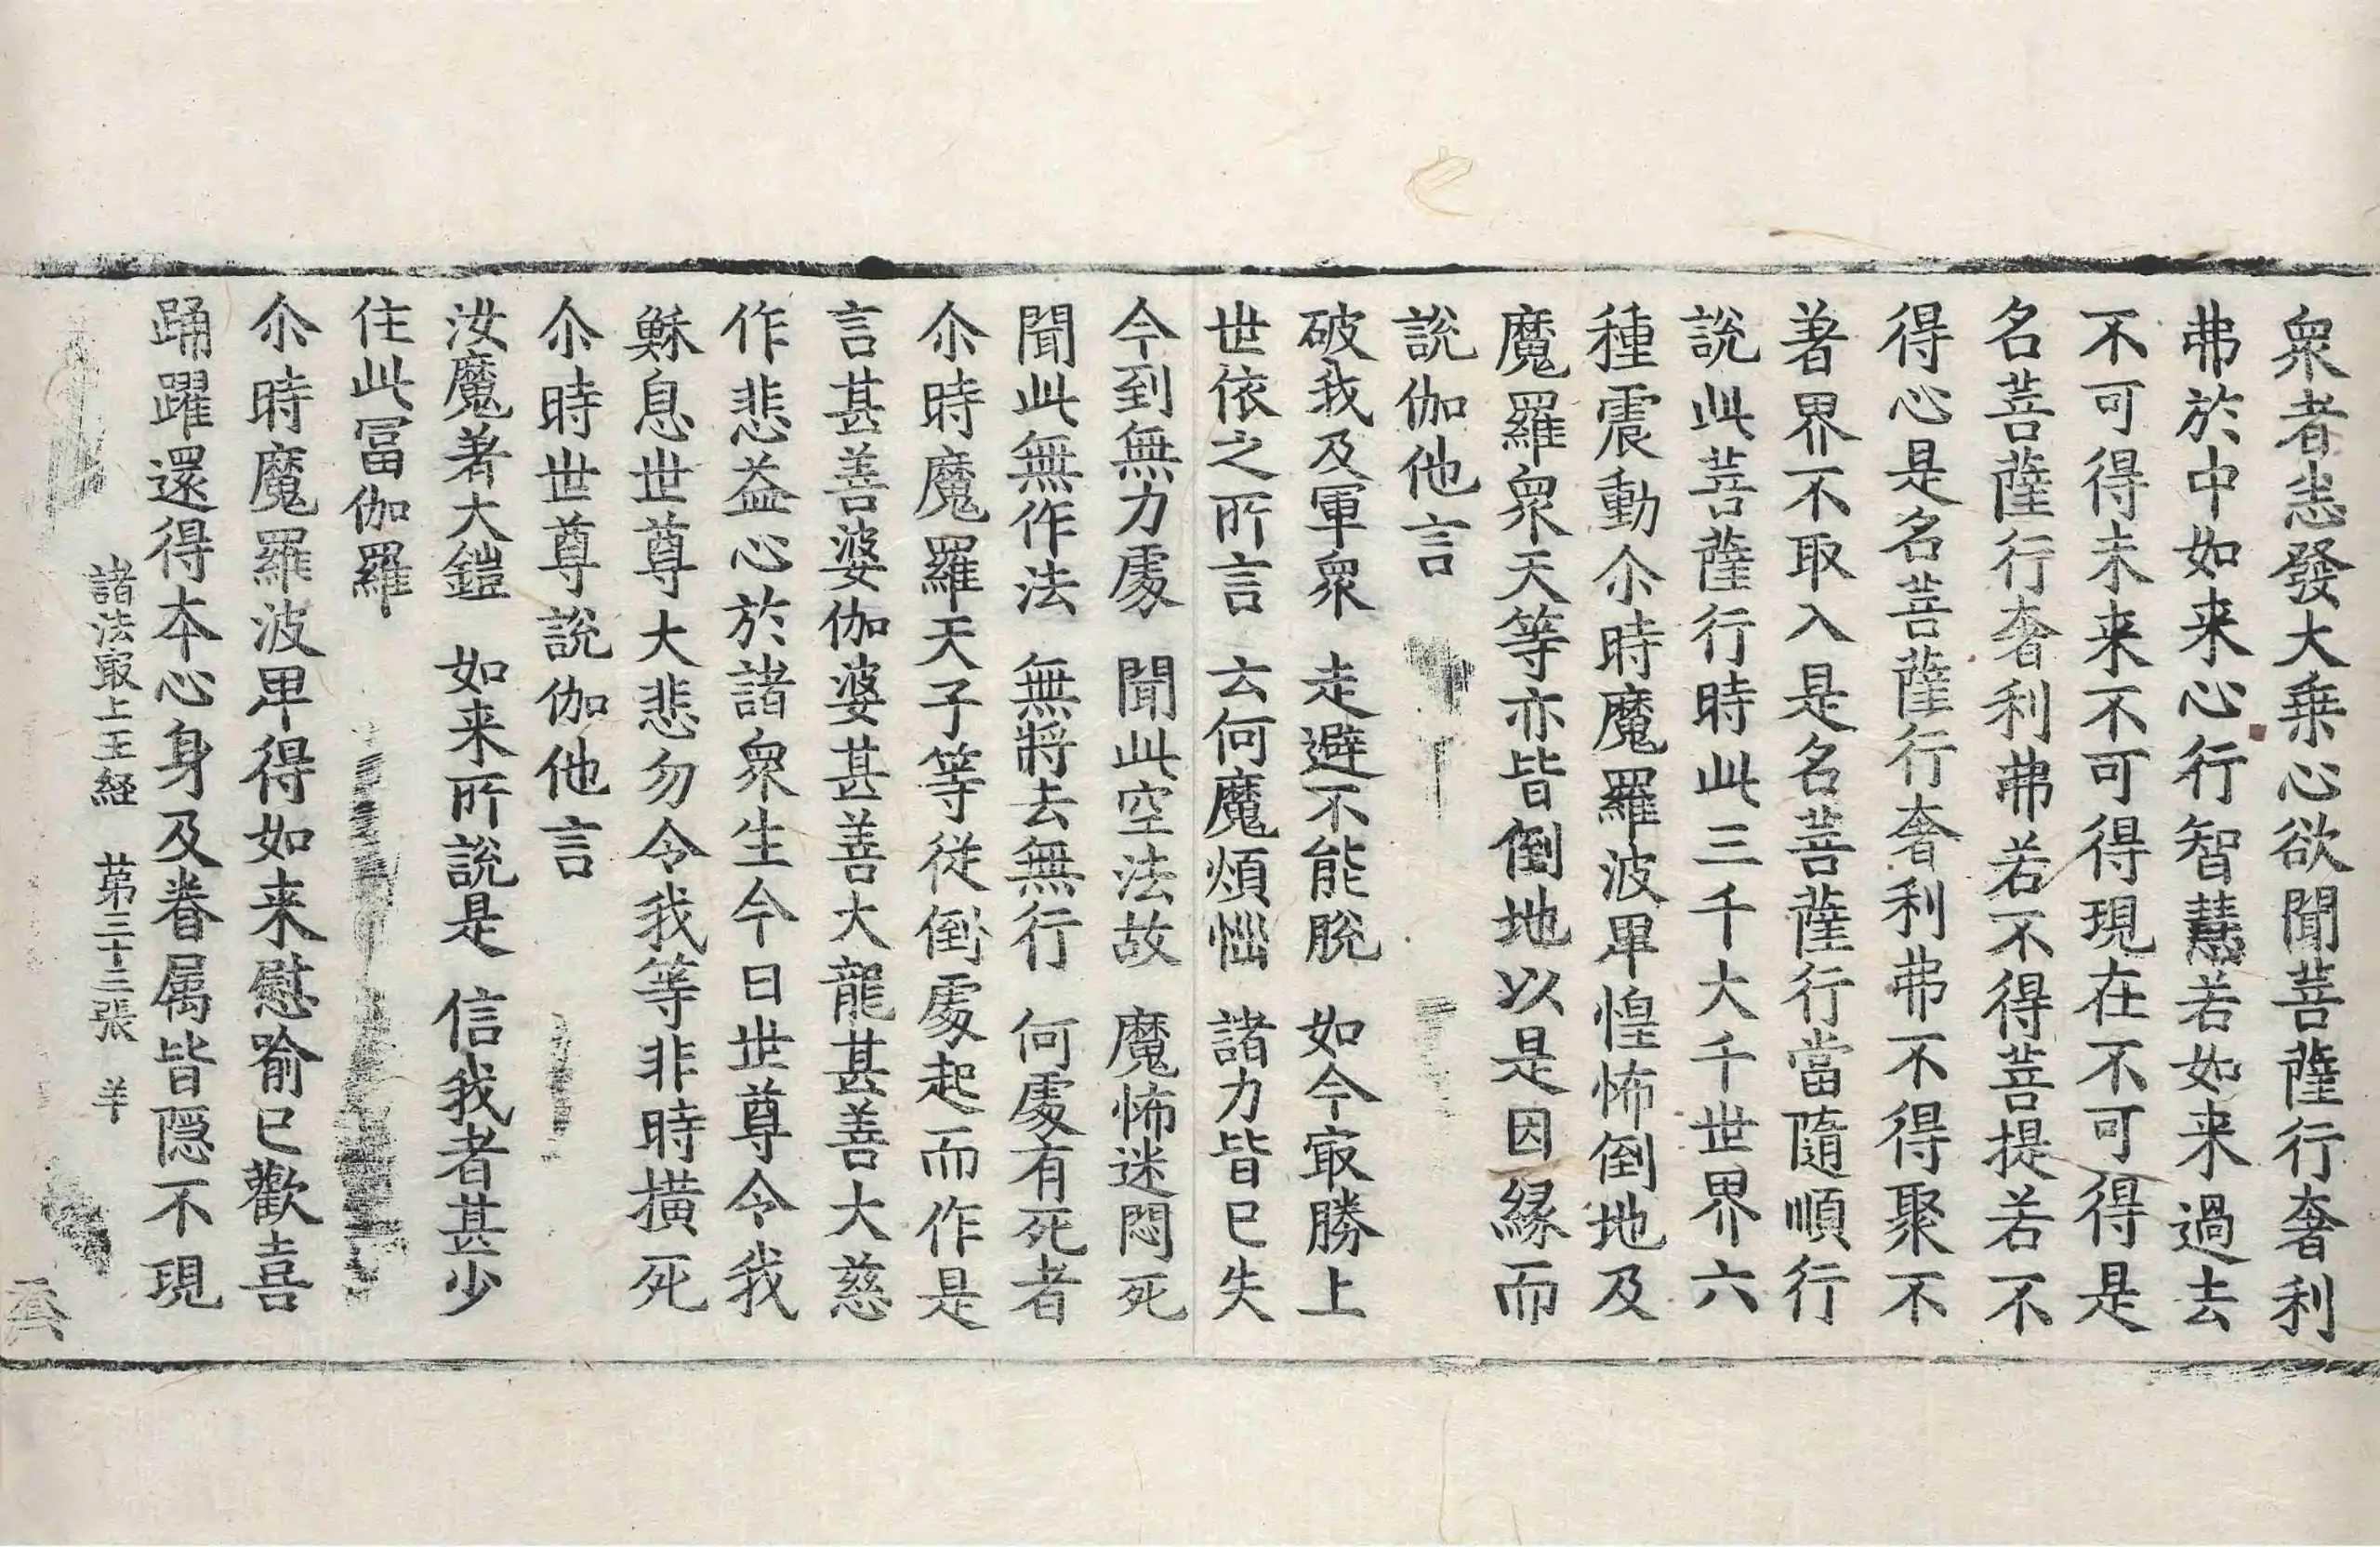 衆者恙發大乗心欲聞菩薩行奢利
弗於中如来心行智慧若如来過去
不可得未来不可得現在不可得是
名菩薩行奢利弗若不得菩提若不
得心是名菩薩行奢利弗不得聚不
著界不取入是名菩薩行當隨順行
說此菩薩行時此三千大千世界六
種震動尒時魔羅波卑惶怖倒地及
魔羅衆天等亦皆倒地以是因縁而
說伽他言
破我及軍衆　走避不能脫　如今㝡勝上
世依之所言　云何魔煩惱　諸力皆已失
今到無力處　聞此空法故　魔怖迷悶死
聞此無作法　無將去無行　何處有死者
尒時魔羅天子等従倒處起而作是
言甚善婆伽婆甚善大龍甚善大慈
作悲益心於諸衆生今日世尊令我
穌息世尊大悲勿令我等非時橫死
尒時世尊說伽他言
汝魔著大鎧　如来所說是　信我者甚少
住此冨伽羅
尒時魔羅波卑得如来慰喻已歡喜
踊躍還得本心身及眷属皆隠不現
諸法㝡上王経　苐三十三張　羊